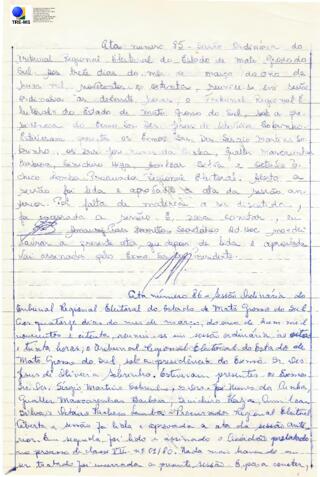 TRE-MS
Ata numero 85 - Sessão Ordinária do
Tribunal Regional Eleitoral do Estado de Mato Grosso do
Sul. Aos treze dias do mes de março do ano de
hum mil, novecentos e oitenta, reuniu-se em sessão
ordinária as dezoito horas, o Tribunal Regional E
leitoral do Estado de Mato Grosso do Sul, sob a pre
sidencia do Exmo Sr. Des. Jesus de Oliveira Sobrinho.
Estiveram presentes os Exmos Srs. Des. Sérgio Martins So
brinho, os Drs. José Nunes da Cunha, Gualter Mascarenhas
Barbosa,
Procurador Regional Eleitoral. Aberta a
sessão foi lida e aprovada a ata da sessão an
terior. Por falta de matéria a ser discutida,
foi encerrada a sessão. E, para constar, eu
Secretário Ad hoc, mandei
lavrar a presente ata que depois de lida e aprovada
vai assinada pelo Exmo Sr. Presidente.
Ata número 86 - Sessão Ordinária do
Tribunal Regional Eleitoral do Estado de Mato Grosso do Sul.
Aos quatorze dias do mes de março, do ano de hum mil
novecentos e oitenta, reuniu-se em sessão ordinária as
trinta horas, o Tribunal Regional Eleitoral do Estado de
Mato Grosso do Sul, sob a presidência do Exmo Sr. Des.
Jesus de Oliveira Sobrinho. Estiveram presentes os Exmos
Srs. Des. Sérgio Martins Sobrinho, os Drs. José Nunes da Cunha,
Gualter Mascarenhas Barbosa,
Procurador Regional Eleitoral.
Aberta a sessão foi lida e aprovada a ata da sessão ante-
rior. Em seguida, foi lido e assinado o Acórdão prolatado
no processo da classe VII nº 03/80. Nada mais havendo a
ser tratado foi encerrada a presente sessão. E, para constar,